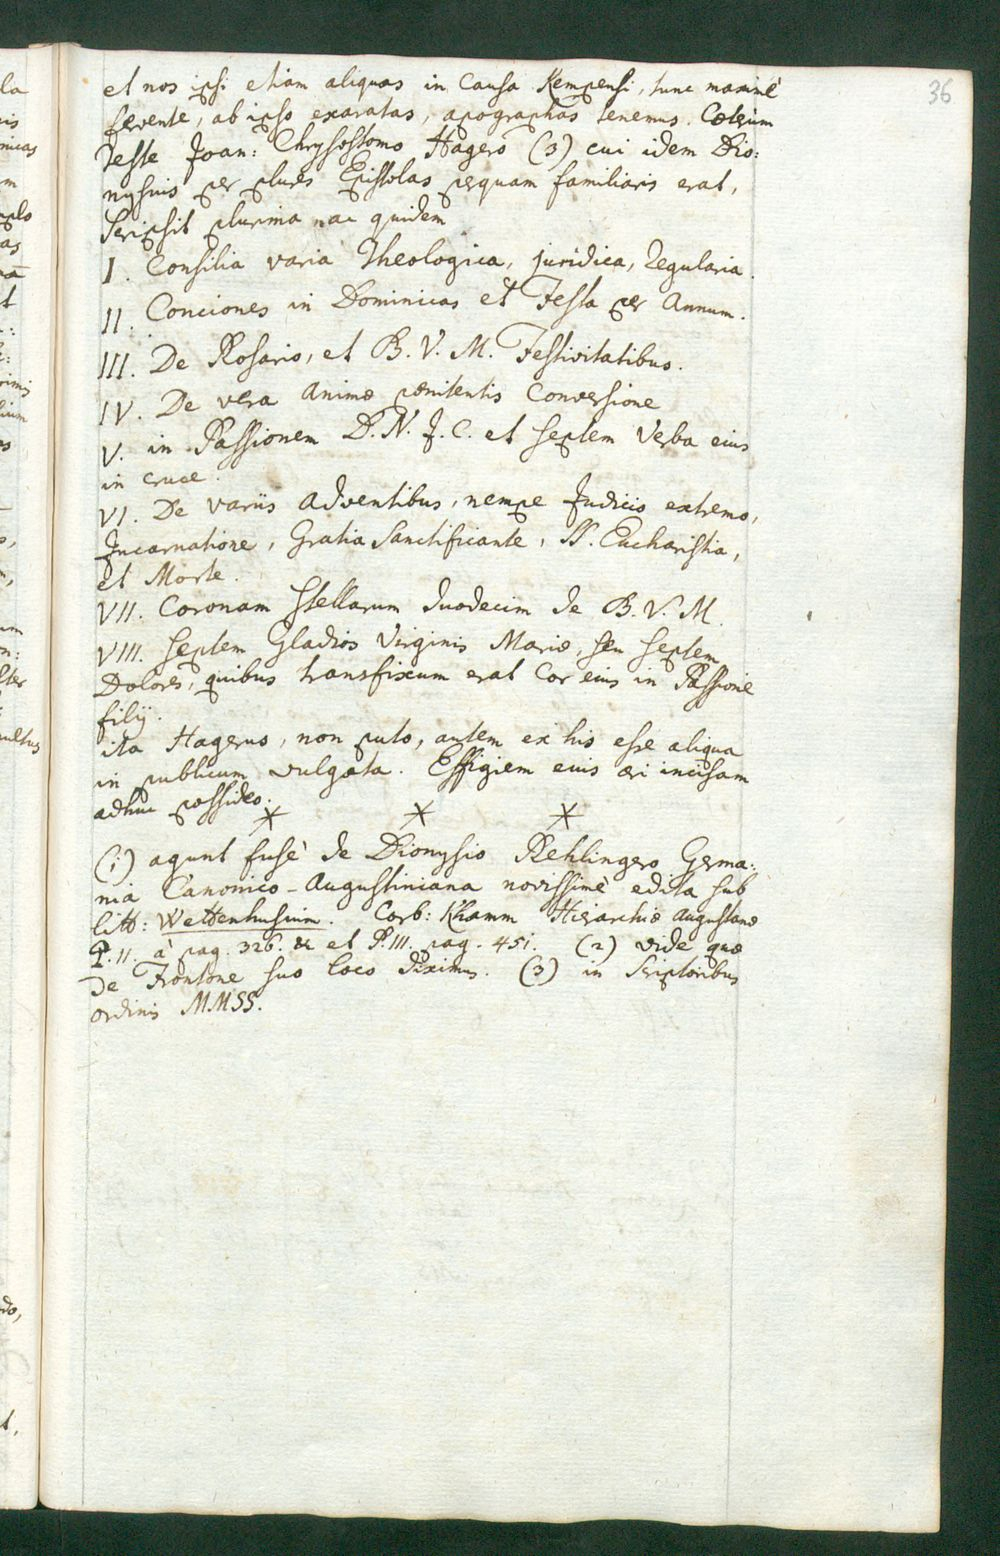 36
et nos ipsi etiam aliquas in causa Kempensi, tunc maximè
fervente, ab ipso exaratas, apographas tenemus. Cæterum
Teste Joan: Chrysostomo Hagero (3) cui idem Dio:
nysius per plures Epistolas perquam familiaris erat,
scripsit plurima ac quidem
I. Consilia varia Theologica, juridica, Regularia.
II. Conciones in Dominicas et Festa per Annum.
III. De Rosario, et B. V. M. Festivitatibus.
IV. De vera Animæ pœnitentis Conversione
V. in Passionem D. N. J. C. et septem Verba eius
in cruce.
VI. De variis Adventibus, nempe Judicio extremo,
Incarnatione, Gratia Sanctificante, SS. Eucharistia,
et Morte.
VII. Coronam Stellarum duodecim de B. V. M.
VIII. Septem Gladios Virginis Mariæ, seu septem
Dolores, quibus transfixum erat Cor eius in Passione
filij.
ita Hagerus, non puto, autem ex his esse aliqua
in publicum vulgata. Effigiem eius æri incisam
adhuc possideo.
* * *
(1) agunt fusè de Dionysio Rehlingero Germa:
nia Canonico-Augustiniana novissimè edita sub
litt: Wettenhusium. Corb: Khamm Hierarchiæ Augustanæ
P. II. à pag. 326. & et P. III. pag. 451. (2) vide quæ
de Frontone suo loco diximus. (3) in Scriptoribus
ordinis MMSS.